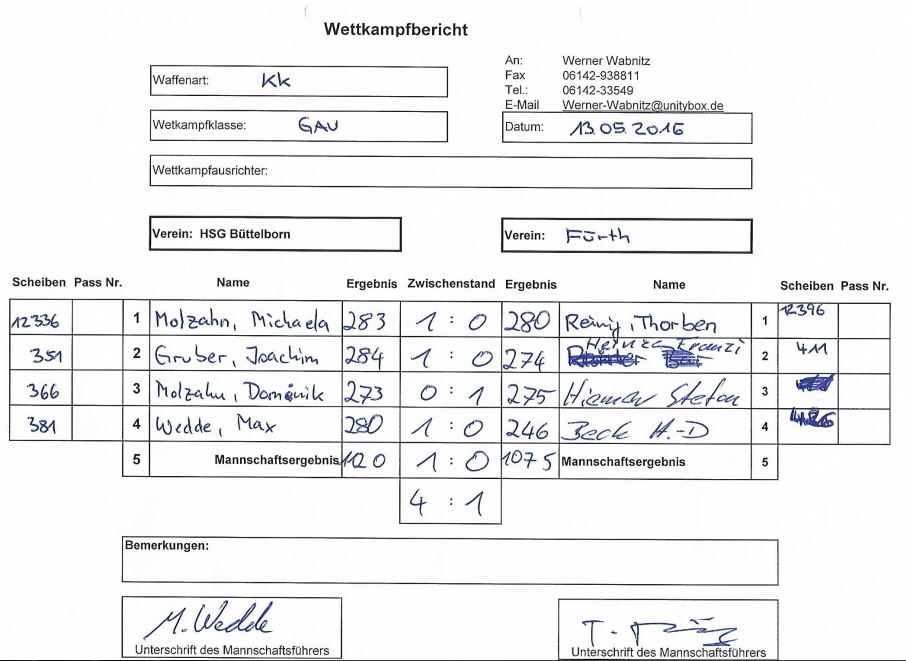 Wettkampfbericht
An: Werner Wabnitz
Waffenart: KK
Fax 06142-938811
Tel.: 06142-33549
E-Mail Werner-Wabnitz@unitybox.de
Wetkampfklasse: GAU
Datum: 13.05.2016
Wettkampfausrichter:
Verein: HSG Büttelborn
Verein: Fürth
Scheiben Pass Nr. Name Ergebnis Zwischenstand Ergebnis Name Scheiben Pass Nr.
12336 1 Molzahn, Michaela 283 1 : 0 280 Reinig, Thorben 1 12396
351 2 Gruber, Joachim 284 1 : 0 274 Franzi 2 411
366 3 Molzahn, Domenik 273 0 : 1 275 Stefan 3
381 4 Wedde, Max 280 1 : 0 246 Beck H.-D 4
5 Mannschaftsergebnis 1120 1 : 0 1075 Mannschaftsergebnis 5
4 : 1
Bemerkungen:
M. Wedde
Unterschrift des Mannschaftsführers
Unterschrift des Mannschaftsführers